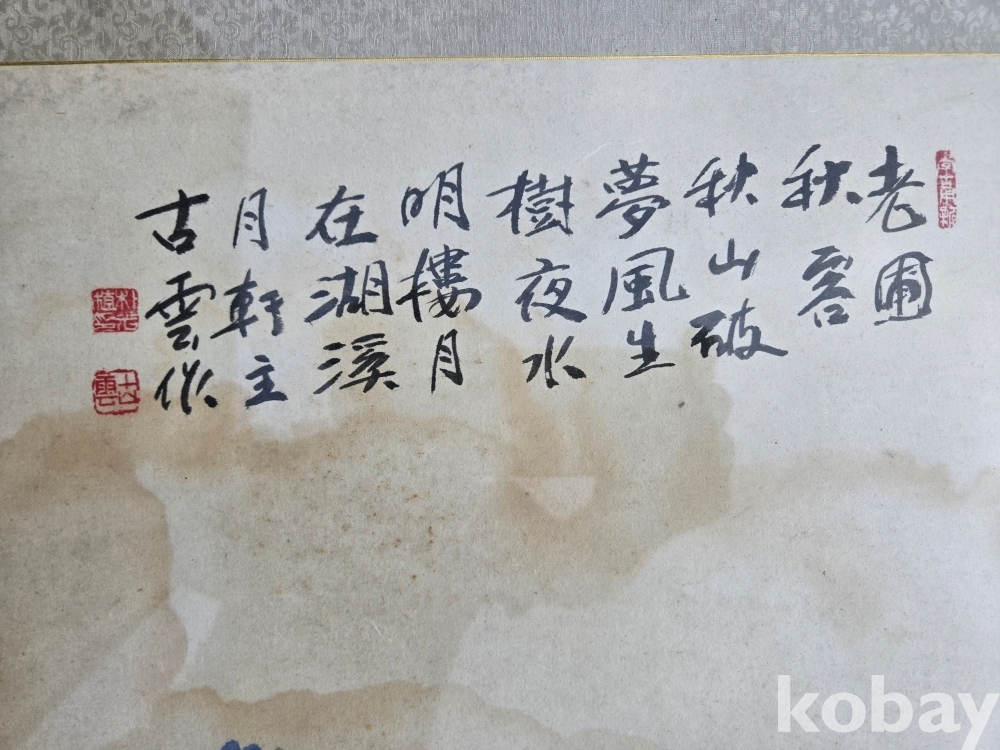 老圃
秋容
秋山破
夢風生
樹夜水
明樓月
在湖溪
月軒主
古雲作
古雲
kobay